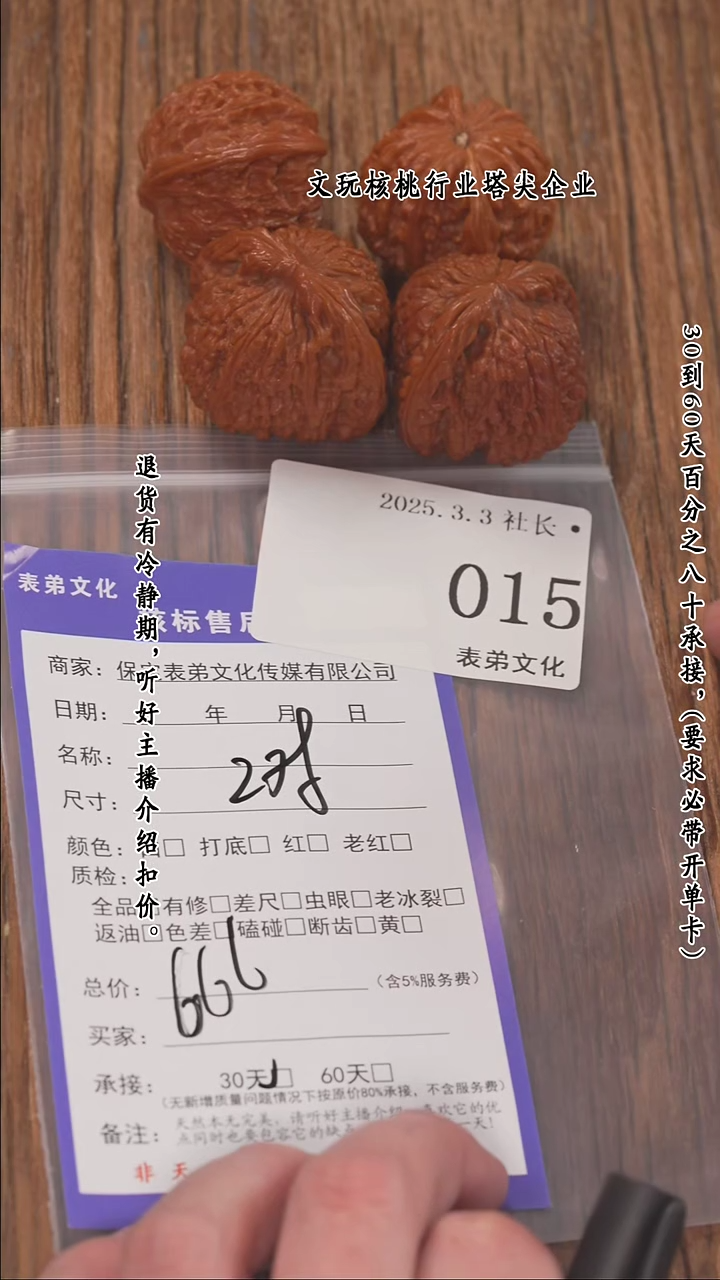 文玩核桃行业塔尖企业
30到60天百分之八十承接，（要求必带开单卡）
退货有冷静期，听好主播介绍扣价。
2025.3.3 社长
015
表弟文化
表弟文化
核标售后
商家：保定表弟文化传媒有限公司
日期： 年 月 日
名称：
2对
尺寸：
颜色： 白□ 打底□ 红□ 老红□
质检：
全品□有修□差尺□虫眼□老冰裂□
返油□色差□磕碰□断齿□黄□
总价： 666 （含5%服务费）
买家：
承接： 30天□ 60天□
（无新增质量问题情况下按原价80%承接，不含服务费）
备注： 天然本无完美，请听好主播介绍，喜欢它的优
点同时也要包容它的缺点 一天！
非 天